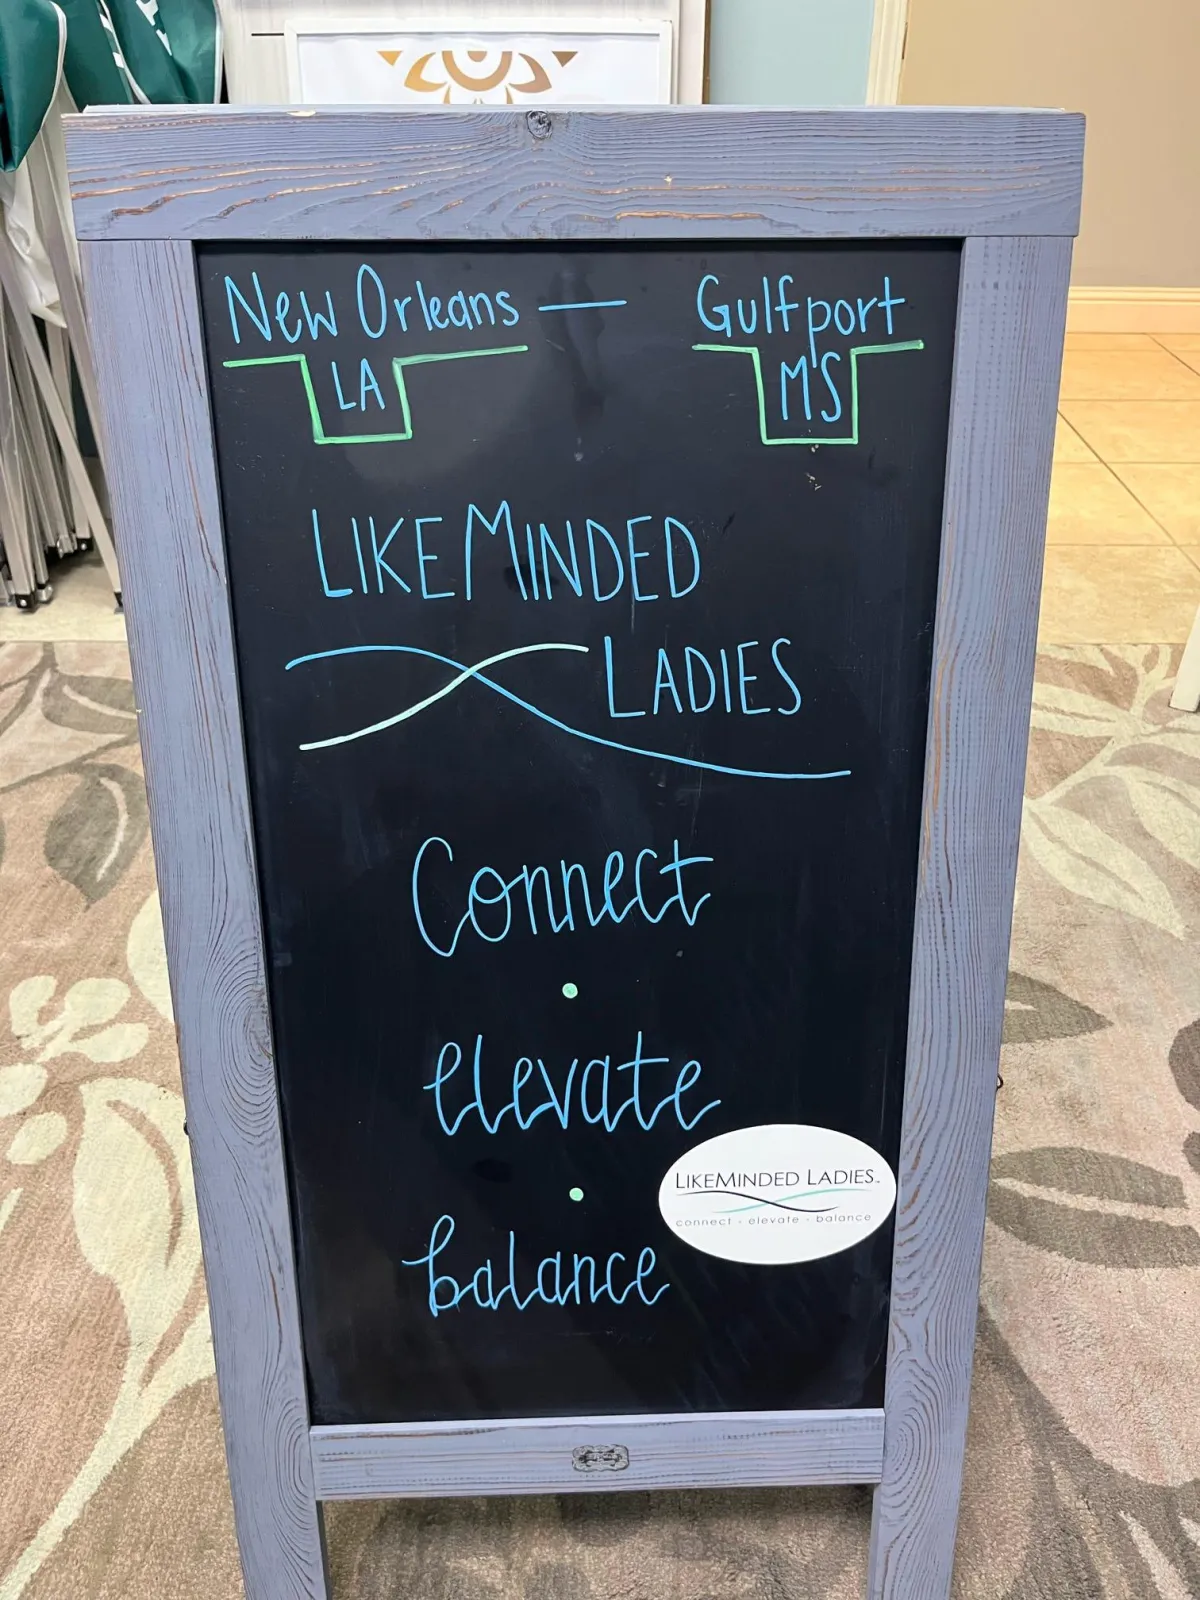 New Orleans — Gulfport
LA MS
LIKEMINDED
LADIES
Connect
•
elevate
•
balance
LIKEMINDED LADIES
connect - elevate - balance